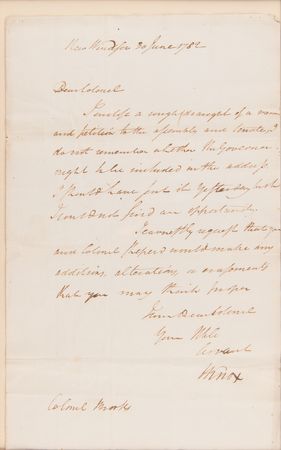 New Windsor 30 June 1782
Dear Colonel
I enclose a rough draught of a
and petition to the assembly and Senate I
do not remember whether the Governor
ought to be included in the address
I should have sent it yesterday but
I could not find an opportunity
I earnestly request that you
and Colonel would make any
additions, alterations, or erasements
that you may think proper
I am Dear Colonel
Your Hble
Servant
HKnox
Colonel Brooks